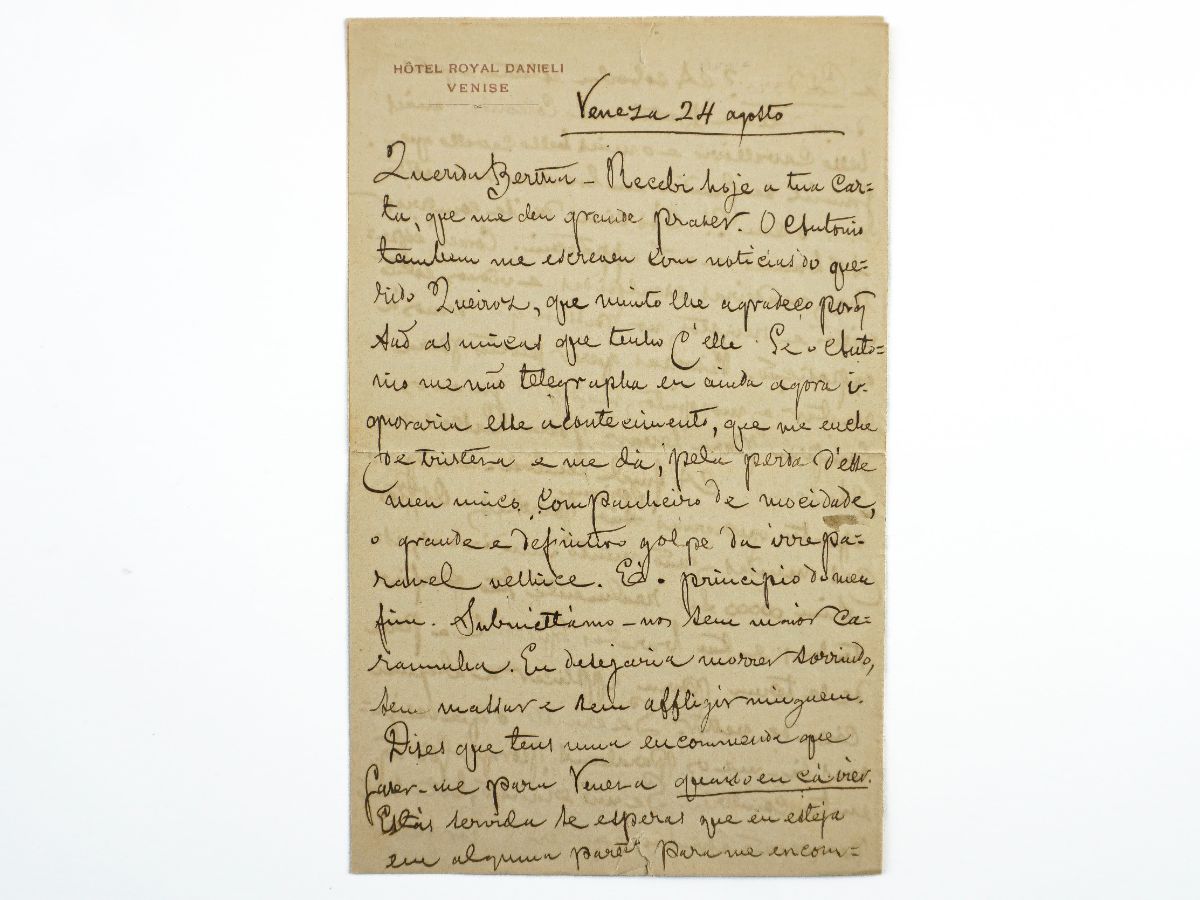 HÔTEL ROYAL DANIELI
VENISE
Veneza 24 agosto
Querida Bertha – Recebi hoje a tua car=
ta, que me deu grande praser. O Antonio
tambem me escreveu com noticias do que=
rido Queiroz, que muito lhe agradeço porq
são as unicas que tenho d'elle. Se o Anto=
nio me não telegrapha eu ainda agora i=
gnoraria esse acontecimento, que me enche
de tristeza e me dá, pela perda d'esse
meu unico companheiro de mocidade,
o grande e definitivo golpe da irrepa=
ravel velhice. É o principio do meu
fim. Submettâmo-nos sem maior ca=
ramunha. Eu desejaria morrer sorrindo,
sem massar e sem affligir ninguem.
Dises que tens uma encommenda que
faser-me para Veneza quando eu cá vier.
Estás servida se esperas que eu esteja
em alguma parte para me encom=